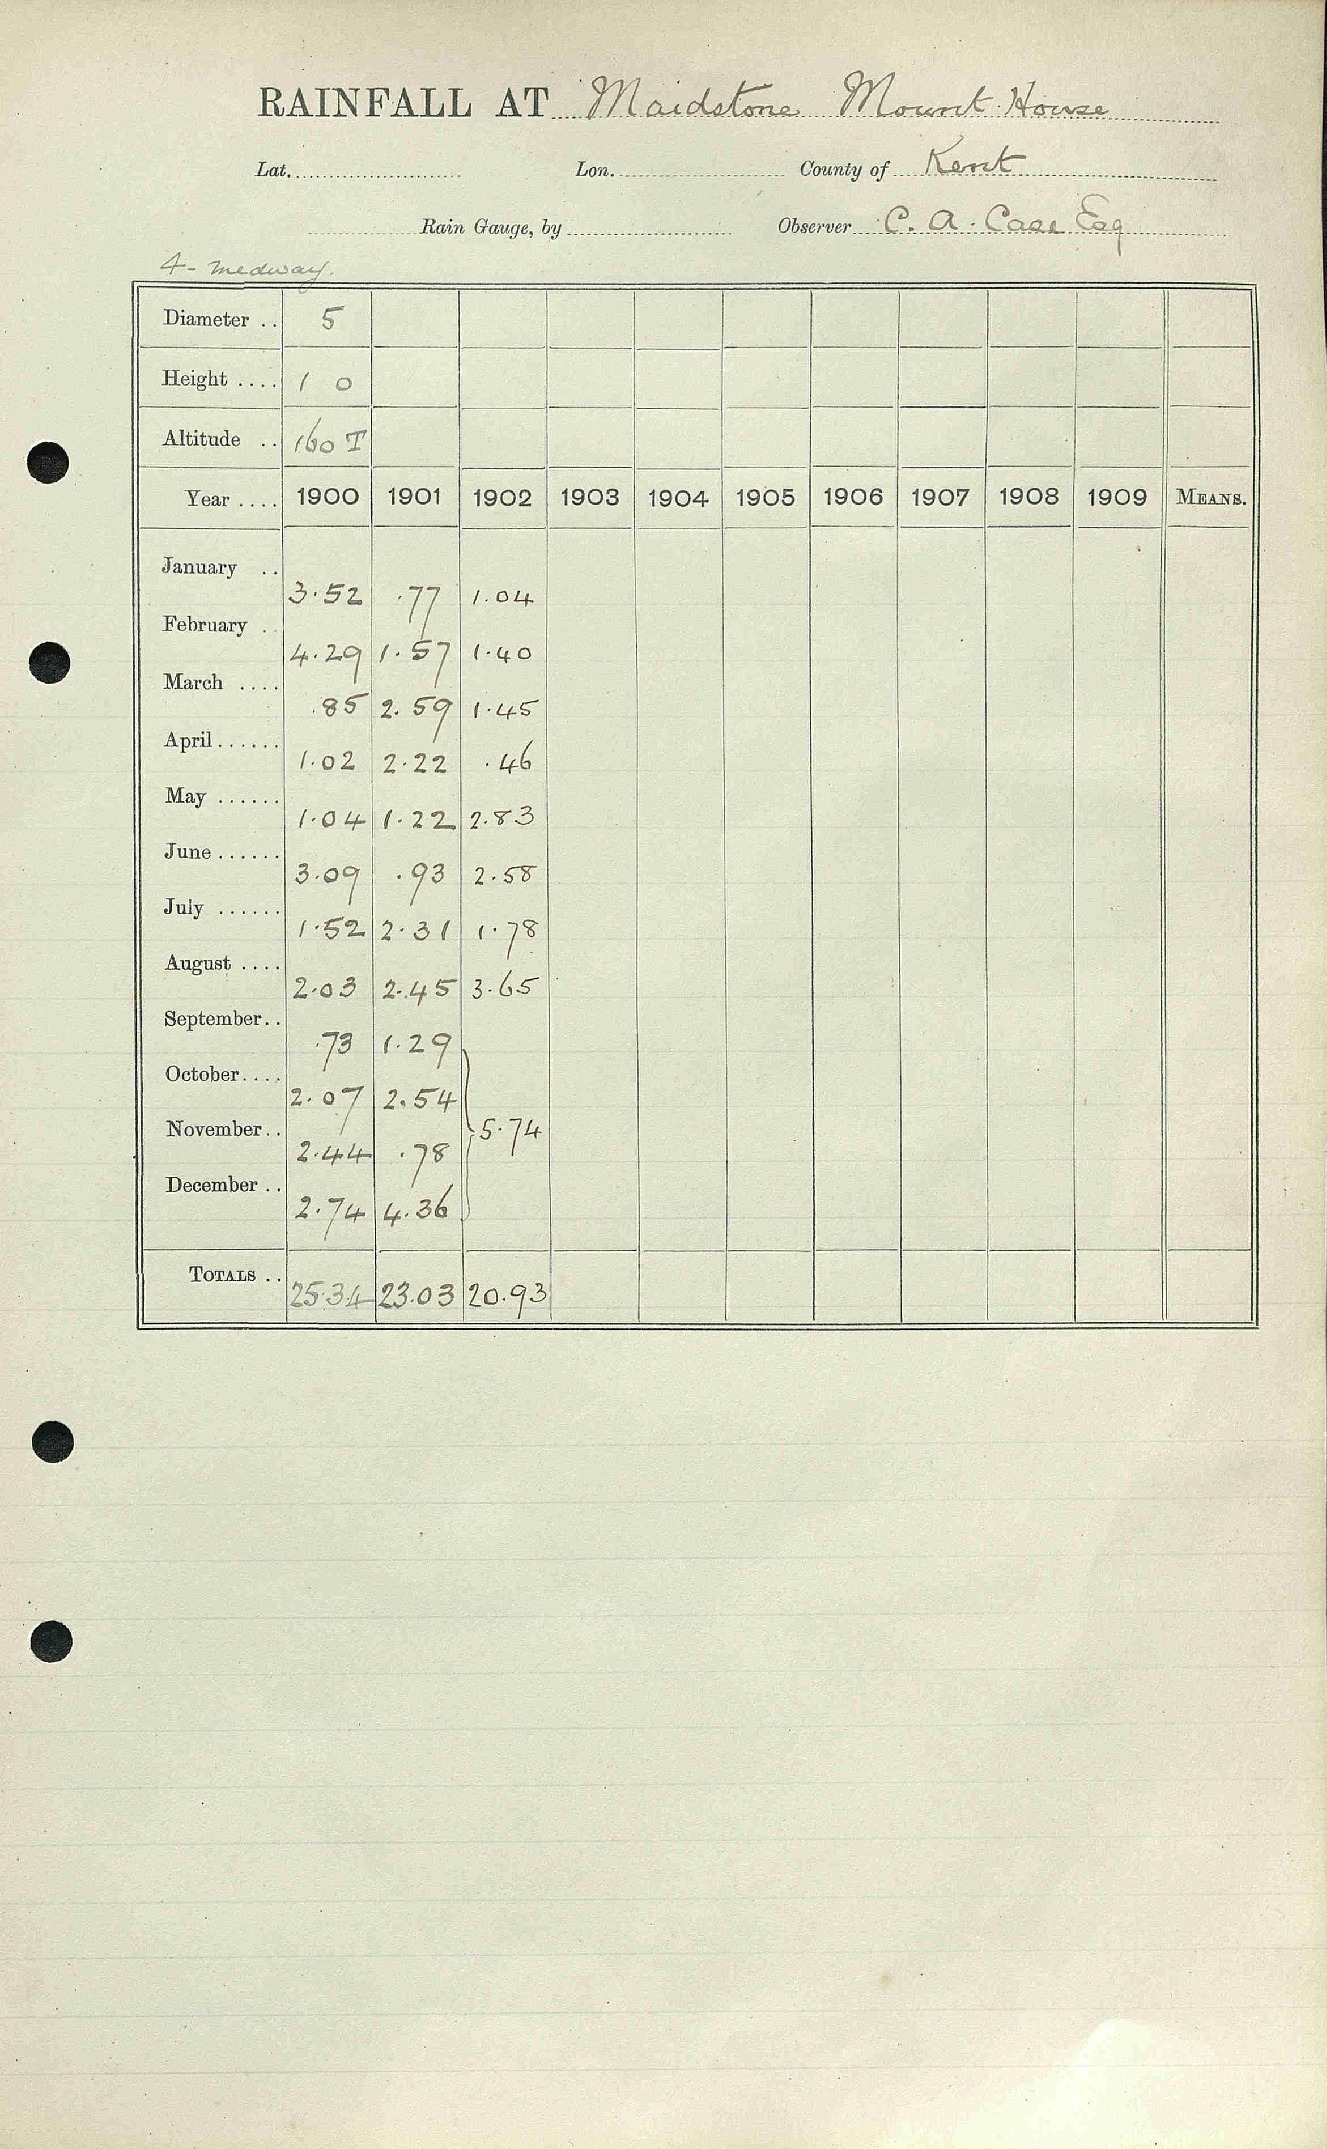 RAINFALL AT Maidstone Mount House
Lat. Lon. County of Kent
Rain Gauge, by Observer C. A. Case Esq
4 - Medway.
Diameter .. 5
Height .... 1 0
Altitude .. 160 T
Year .... 1900 1901 1902 1903 1904 1905 1906 1907 1908 1909 MEANS.
January .. 3.52 .77 1.04
February .. 4.29 1.57 1.40
March .... .85 2.59 1.45
April...... 1.02 2.22 .46
May ...... 1.04 1.22 2.83
June...... 3.09 .93 2.58
July ...... 1.52 2.31 1.78
August .... 2.03 2.45 3.65
September.. .73 1.29
October.... 2.07 2.54
November.. 2.44 .78 5.74
December .. 2.74 4.36
TOTALS .. 25.34 23.03 20.93